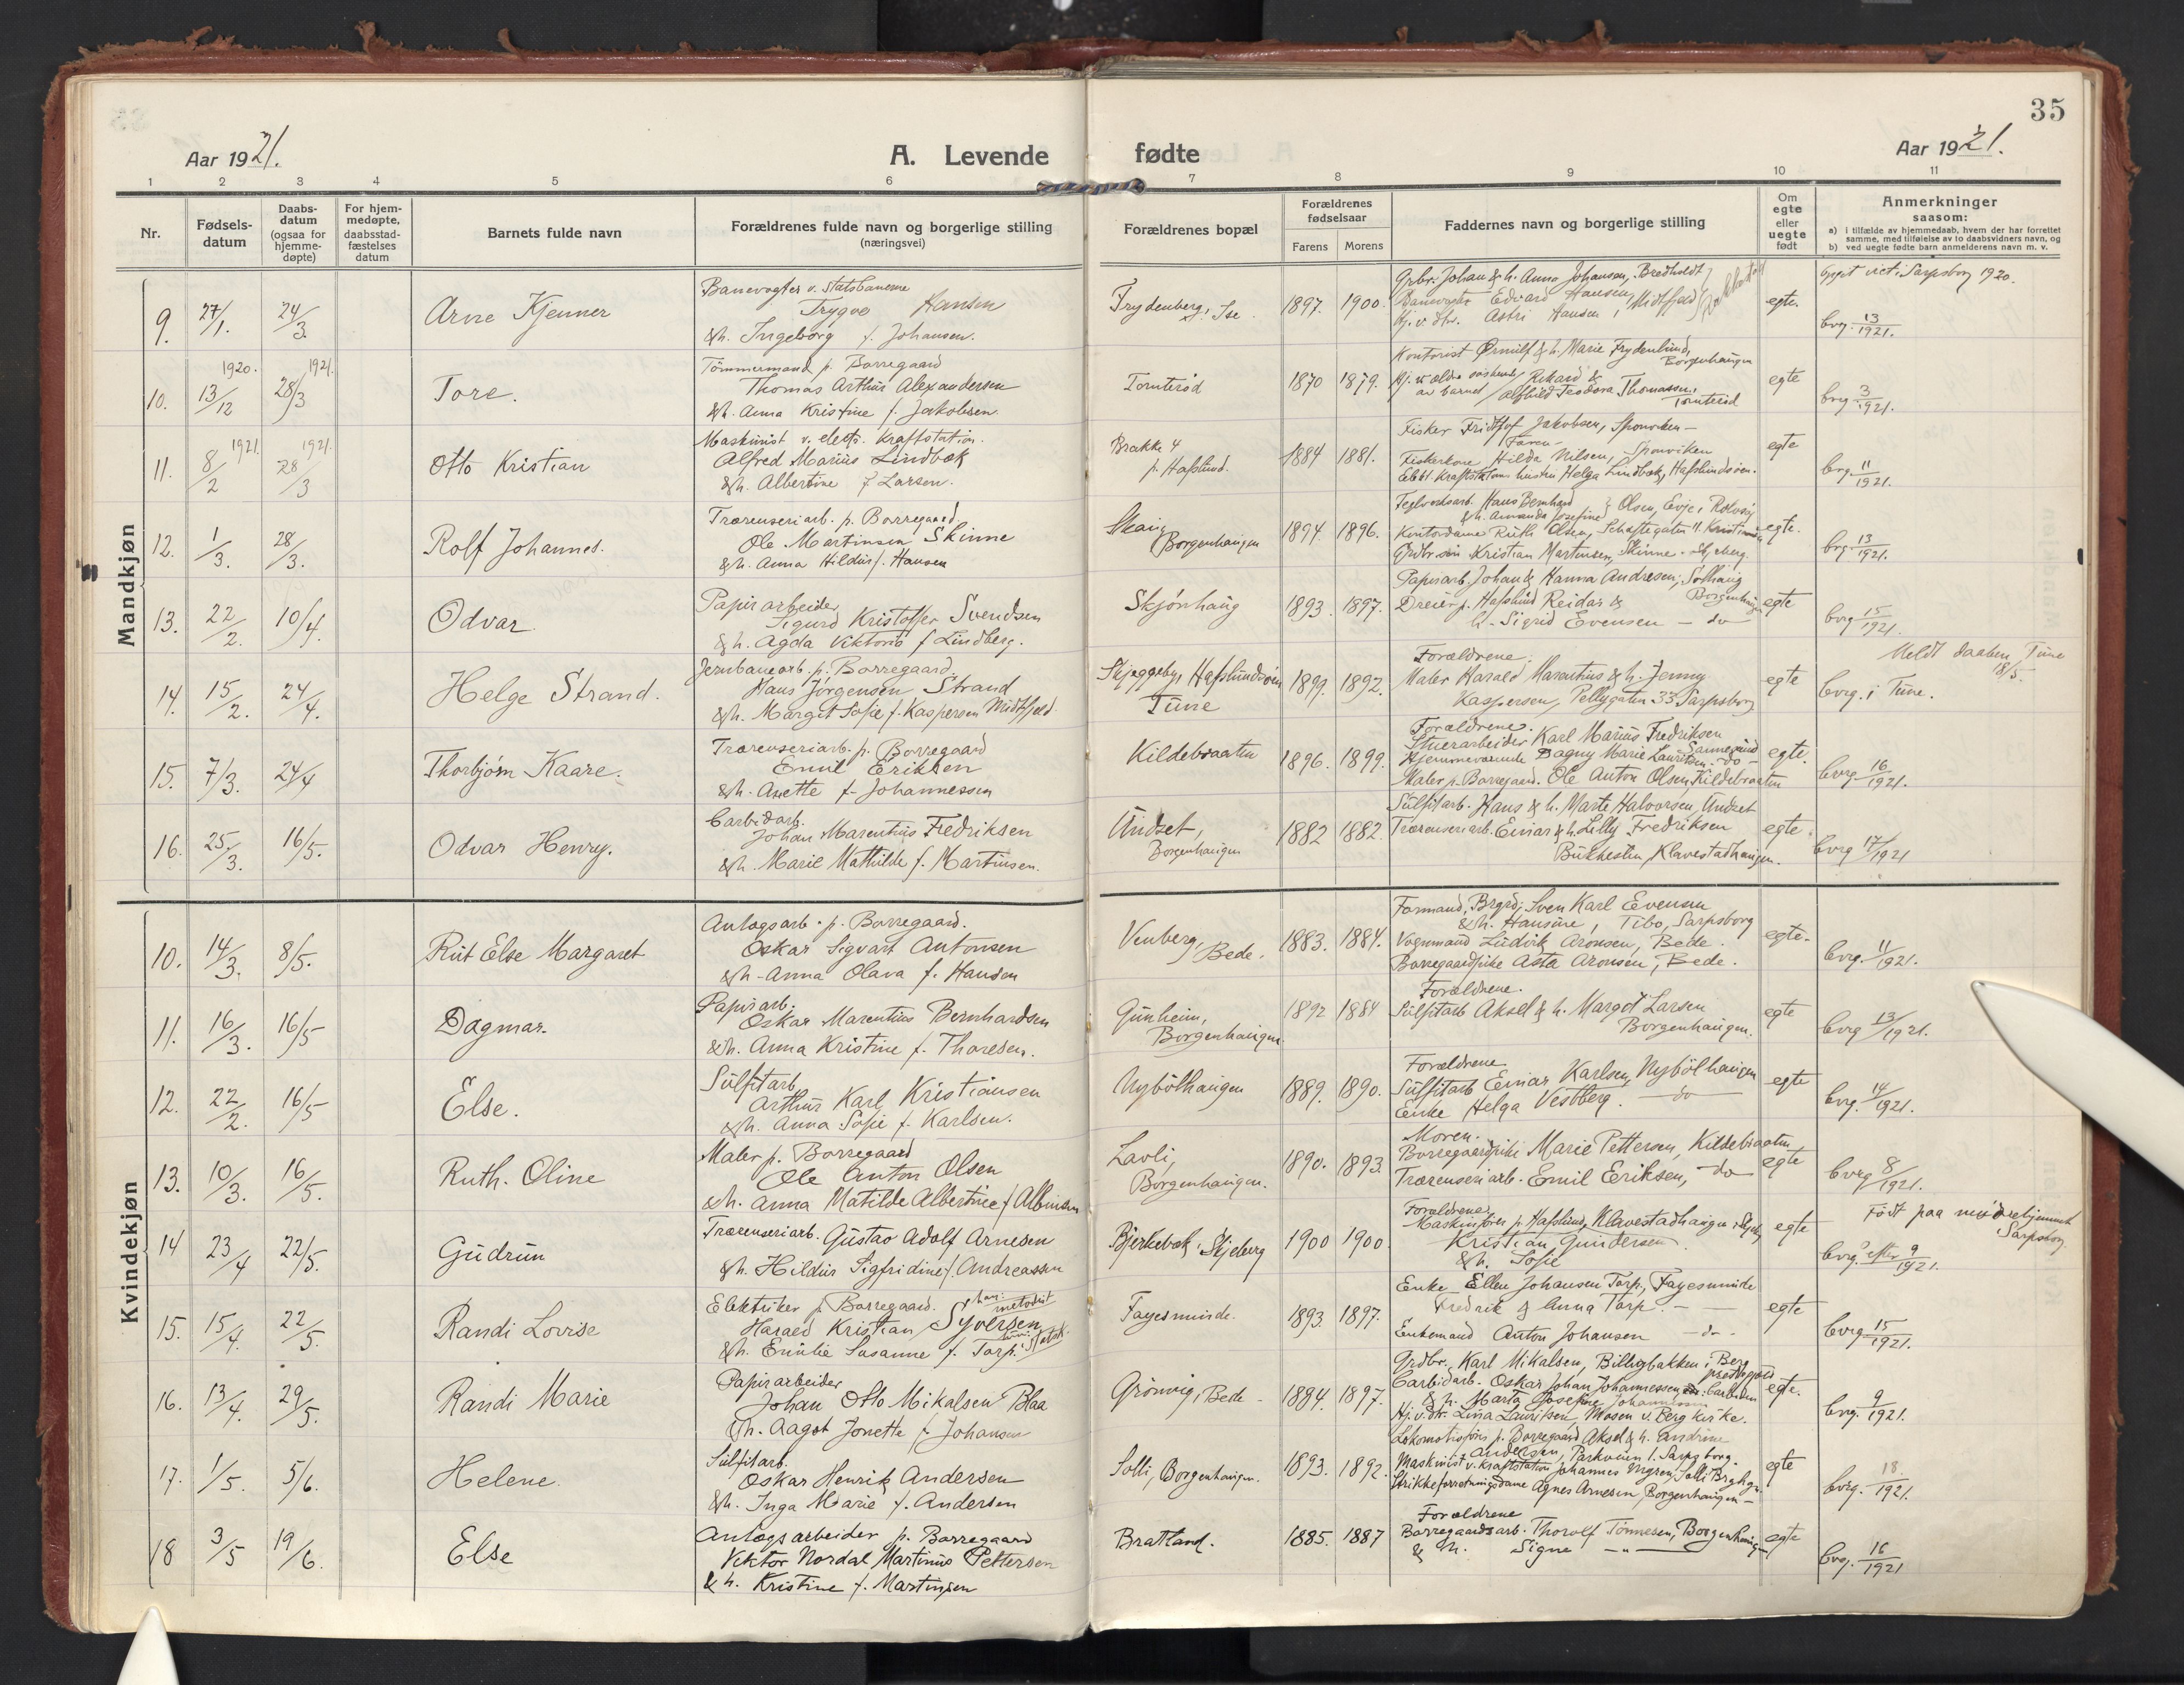 35
Aar 1921.
A. Levende fødte
Aar 1921.
1 2 3 4 5 6 7 8 9 10 11
Nr.
Fødsels-
datum
Daabs-
datum
(ogsaa for
hjemme-
døpte)
For hjem-
medøpte,
daabsstad-
fæstelses
datum
Barnets fulde navn
Forældrenes fulde navn og borgerlige stilling
(næringsvei)
Forældrenes bopæl
Forældrenes
fødselsaar
Farens Morens
Faddernes navn og borgerlige stilling
Om
egte
eller
uegte
født
Anmerkninger
saasom:
a) i tilfælde av hjemmedaab, hvem der har forrettet
samme, med tilføielse av to daabsvidners navn, og
b) ved uegte fødte barn anmelderens navn m. v.
Mandkjøn
9. 27/1. 24/3. Arne Kjenner
Banevogter v. Statsbanerne
Trygve Hansen
& h. Ingeborg f. Johansen.
Frydenberg, Ise. 1897. 1900.
Grbr. Johan & h. Anna Johansen, Bredholdt
Banevogter Edvard Hansen, Midtfjeld
Hj. v. dtr. Astri Hansen,
egte.
viet i Sarpsborg 1920.
bvg. 13/1921.
10. 1920. 13/12 1921. 28/3 Tore.
Tömmermand p. Borregaard
Thomas Arthur Alexandersen
& h. Anna Kristine f. Jakobsen.
Tornteröd 1870 1879.
Kontorist Ørnulf & h. Marie Frydenlund,
Borgenhaugen
Hj. v. ældre søskende Rikard &
av barnet Alfhild Teodora Thomassen,
Tornteröd
egte
bvg 3/1921.
11. 1921. 8/2 1921. 28/3 Otto Kristian
Maskinist v. electr. Kraftstation.
Alfred Marius Lindbæk
& h. Albertine f Larsen.
Brakke 4
p. Hafslund. 1884 1881.
Fisker Fridtjof Jakobsen, Sponviken -
Faren -
Fiskerkone Hilda Nilsen, Sponviken
Elekt. Kraftstations hustru Helga Lindbæk, Hafslundsöen.
egte
bvg. 11/1921.
12. 1/3. 28/3. Rolf Johannes.
Træreuseriarb. p. Borregaard,
Ole Martinsen Skinne
& h. Anna Hildur f. Hansen
Skaug
Borgenhaugen 1894. 1896.
Teglverksarb. Hans Bernhard
& h. Amanda Josefine Olsen, Evje i Rolvsöy
Kontordame Ruth Olsen, Schaftegaten 11 Kristiania
Grdbr. sön Kristian Martinsen, Skinne - Skjeberg.
egte.
bvg. 13/1921.
13. 22/2. 10/4. Odvar
Papirarbeider
Sigurd Kristoffer Svendsen
& h. Agda Viktoria f Lindberg.
Skjönhaug 1893. 1897.
Papirarb. Johan & Hanna Andresen, Solhaug
Borgenhaugen
Dreier p. Hafslund Reidar &
h. Sigrid Evensen - do
egte
bvg 15/1921.
14. 15/2. 24/4. Helge Strand.
Jernbanearb. p. Borregaard
Hans Jörgensen Strand
& h. Margit Sofie f. Kaspersen Midtfjeld.
Skjeggeby, Hafslundsöen
Tune 1899. 1892.
Forældrene;
Maler Harald Marentius & h. Jenny
Kaspersen, Pellygaten 33 Sarpsborg
egte
Meldt daaben Tune
18/5.
bvg. i Tune.
15. 7/3. 24/4 Thorbjörn Kaare.
Træreuseriarb. p. Borregaard
Emil Eriksen
& h. Anette f. Johannessen
Kildebraaten 1896. 1899.
Forældrene.
Stuerarbeider Karl Marius Fredriksen
Sannesund
Hjemmeværende Dagny Marie Lauritsen - do -
Maler p. Borregaard. Ole Anton Olsen, Kildebraaten
egte.
bvrg. 16/1921.
16. 25/3. 16/5. Odvar Henry.
Carbidarb.
Johan Marentius Fredriksen
& h. Marie Mathilde f. Martinsen.
Undset,
Borgenhaugen 1882 1882.
Sulfitarb. Hans & h. Marte Halvorsen, Undset
Træreuseriarb. Einar & h. Lilly Fredriksen
Bukhesten, Klavestadhaugen.
egte.
bvrg 17/1921
Kvindekjøn
10. 14/3. 8/5. Rut Else Margaret
Anlægsarb. p. Borregaard.
Oskar Sigvart Antonsen
& h. Anna Olava f. Hansen
Venberg,
Bede. 1883. 1884.
Formand, Brgrd; Sven Karl Evensen
& h. Hansine, Tibo, Sarpsborg
Vognmand Ludvik Aronsen, Bede.
Borregaardpike Asta Aronsen, Bede.
egte.
bvrg. 11/1921.
11. 16/3. 16/5 Dagmar.
Papirarb.
Oskar Marentius Bernhardsen
& h. Anna Kristine f. Thoresen.
Gunheim,
Borgenhaugen 1892 1884
Forældrene.
Sulfitarb Aksel & h. Margot Larsen
Borgenhaugen.
egte
bvrg 13/1921.
12. 22/2. 16/5 Else.
Sulfitarb
Arthur Karl Kristiansen
& h. Anna Sofie f. Karlsen.
Nybölhaugen 1889. 1890.
Forældrene
Sulfitarb Einar Karlsen, Nybölhaugen
Enke Helga Vestberg. do
egte
bvrg. 14/1921.
13. 10/3. 16/5. Ruth. Oline
Maler p. Borregaard
Ole Anton Olsen
& h. Anna Matilde Albertine f Albinsen
Lavli,
Borgenhaugen. 1890. 1893
Moren.
Borregaardpike Marie Pettersen, Kildebraaten
Træreuseriarb. Emil Eriksen, - do
egte
bvrg 8/1921.
14 23/4 22/5. Gudrun
Træreuseriarb. Gustav Adolf Arnesen
& h. Hildur Sigfridine f. Andreassen
Bjerkebæk i Skjeberg 1900 1900.
Forældrene,
Maskinförer p. Hafslund, Klavestadhaugen i Skjeb
Kristian Gundersen
& h. Sofie
egte
Født paa mödrehjemmet
Sarpsborg
bvrg? efter 9/1921.
15. 15/4. 22/5. Randi Lovise
Elektriker p. Borregaard. han: metodist
Harald Kristian Syversen
& h. Emilie Susanne f. Torp.
Fagesminde. 1893. 1897.
Enke Ellen Johansen Torp, Fagesminde
Fredrik & Anna Torp. -
Enkemand Anton Johansen - do -
egte
bvrg 15/1921.
16. 13/4. 29/5. Randi Marie
Papirarbeider
Johan Otto Mikalsen Blaa
& h. Aagot Jonette f. Johansen
Grönvig, Bede - 1894. 1897.
Grdbr. Karl Mikalsen, Billigbakken i Berg
prestegjeld
Carbidarb. Oskar Johan Johannessen
& h. Marta Josefine Johannessen
Hj. v. dtr. Lina Lauritsen, Mosen v. Berg kirke.
egte.
bvrg. 9/1921.
17. 1/5. 5/6. Helene.
Sulfitarb.
Oskar Henrik Andersen
& h. Inga Marie f. Andersen
Solli, Borgenhaugen. 1893. 1892.
Lokomotivförer p. Borregaard Aksel & h. Andrine
Andersen, Parkveien 1. Sarpsborg.
Maskinist v. kraftstation Johannes Ingren, Solli Brghgn
Strikkeforretningsdame Agnes Arnesen, Borgenhaugen -
egte
bvrg. 18/1921.
18 3/5 19/6. Else
Anlægsarbeider p. Borregaard
Viktor Nordal Martinius Pettersen
& h. Kristine f. Martinsen
Bratland. 1885. 1887
Forældrene
Borregaardsarb. Thorolf Tönnesen, Borgenhaugen
& h. Signe -"-
egte
bvg. 16/1921